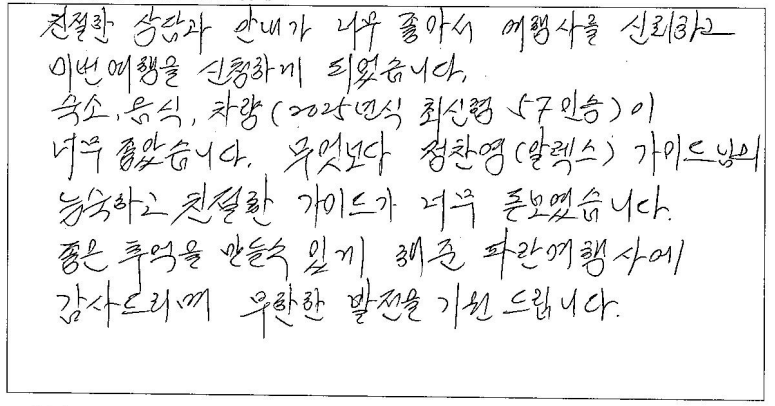 친절한 상담과 안내가 너무 좋아서 여행사를 신뢰하고
이번여행을 신청하게 되었습니다.
숙소, 음식, 차량(2025년식 최신형 57인승)이
너무 좋았습니다. 무엇보다 정찬영(알렉스) 가이드님의
능숙하고 친절한 가이드가 너무 돋보였습니다.
좋은 추억을 만들수 있게 해준 파란여행사에
감사드리며 무한한 발전을 기원 드립니다.